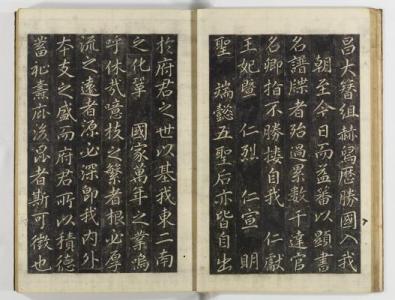 昌大簪組赫舄歷勝國入我
朝至今日而益蕃以顯書
名譜牒者殆過累數千達官
名卿指不勝摟自我 仁獻
王妃暨 仁烈 仁宣 明
聖 端懿五聖后亦皆自出
於府君之世以基我東二南
之化單 國家萬年之業嗚
呼休哉噫枝之繁者根必厚
流之遠者源必深卽我內外
本支之盛而府君所以積德
蓄祉燾庥後昆者斯可徵也